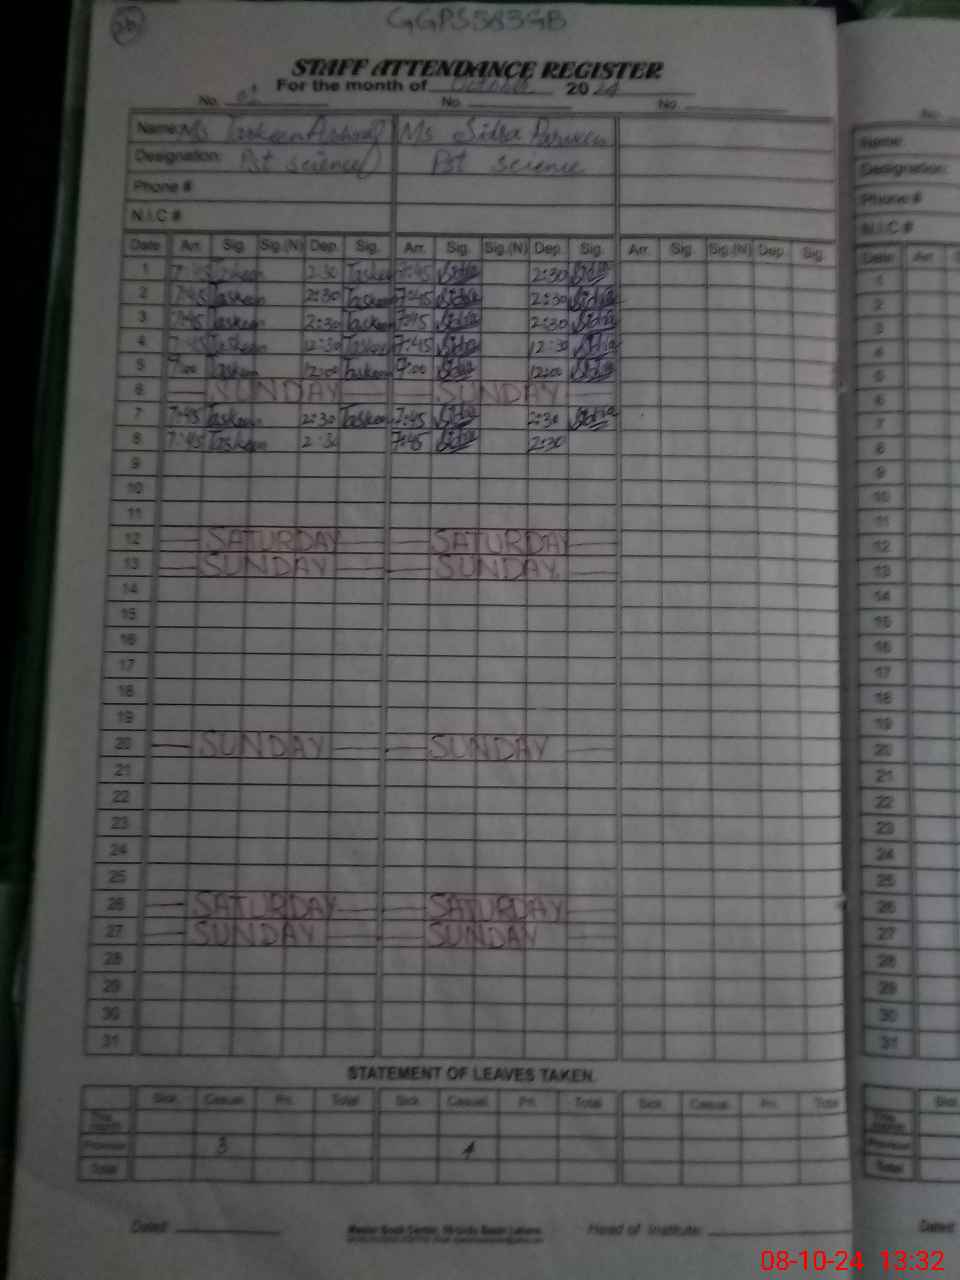 26
GGPS 585GB
STAFF ATTENDANCE REGISTER
For the month of October 2024
No. 02 No. No.
Name: Ms Taskeen Ms Sidra Parveen
Designation: Pst science Pst science
Phone #
N.I.C #
Date Arr. Sig. Sig.(N) Dep. Sig. Arr. Sig. Sig.(N) Dep. Sig. Arr. Sig. Sig.(N) Dep. Sig.
1 7:45 Taskeen 2:30 Taskeen 7:45 Sidra 2:30 Sidra
2 7:45 Taskeen 2:30 Taskeen 7:45 Sidra 2:30 Sidra
3 7:45 Taskeen 2:30 Taskeen 7:45 Sidra 2:30 Sidra
4 7:45 Taskeen 12:30 Taskeen 7:45 Sidra 12:30 Sidra
5 9:00 Taskeen 12:00 Taskeen 9:00 Sidra 12:00 Sidra
6 SUNDAY SUNDAY
7 7:45 Taskeen 2:30 Taskeen 7:45 Sidra 2:30 Sidra
8 7:45 Taskeen 2:30 7:45 Sidra 2:30
9
10
11
12 SATURDAY SATURDAY
13 SUNDAY SUNDAY
14
15
16
17
18
19
20 SUNDAY SUNDAY
21
22
23
24
25
26 SATURDAY SATURDAY
27 SUNDAY SUNDAY
28
29
30
31
STATEMENT OF LEAVES TAKEN.
Sick Casual Pri. Total Sick Casual Pri. Total Sick Casual Pri. Total
This month
Previous 3 4
Total
Dated: Head of Institute:
No.
Name:
Designation:
Phone #
N.I.C #
Date Arr
1
2
3
4
5
6
7
8
9
10
11
12
13
14
15
16
17
18
19
20
21
22
23
24
25
26
27
28
29
30
31
This month
Previous
Total
Dated:
08-10-24 13:32